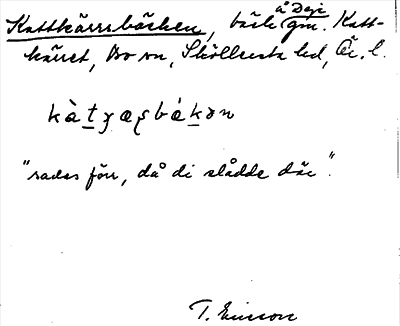 å Deje
Kattkärrsbäcken, bäck gm. Katt-
kärret, Bo sn, Sköllersta hd, Ör. l.
kàtꞔæʂbǽkən
"sades förr, då di slådde där".
T. Ericson